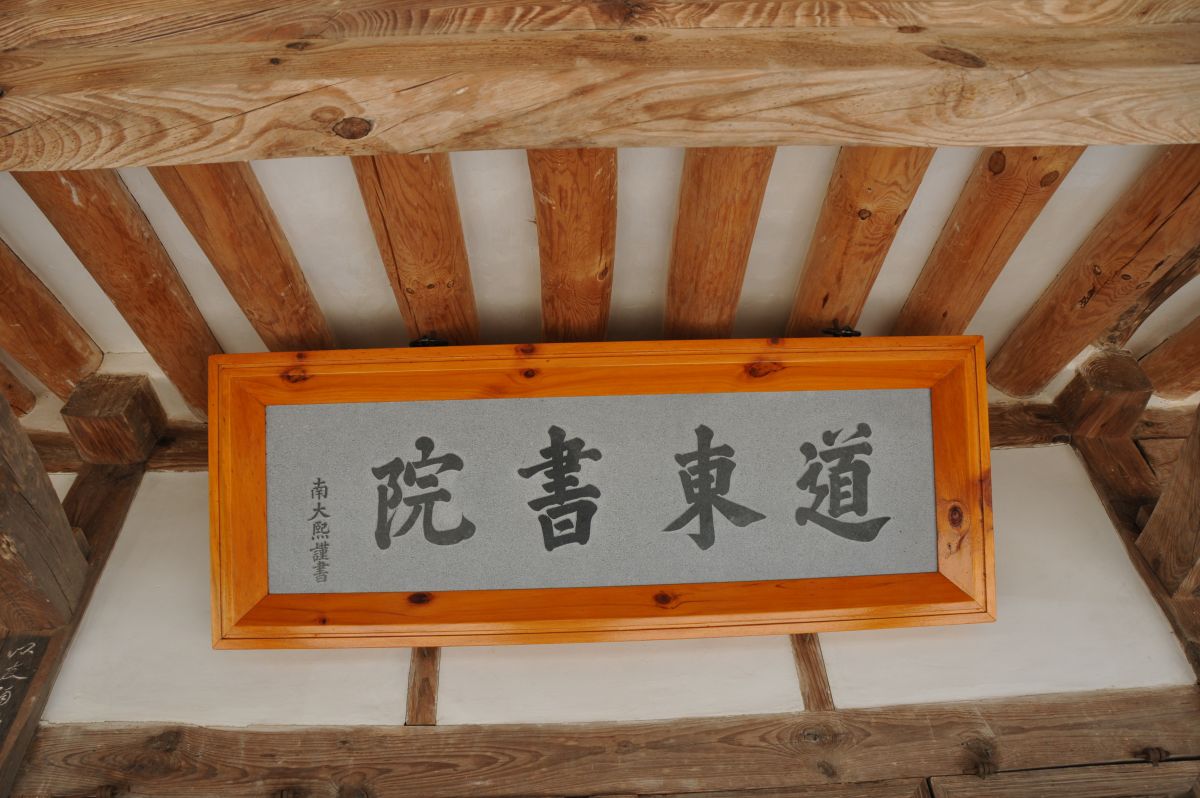 道東書院
南大熙謹書